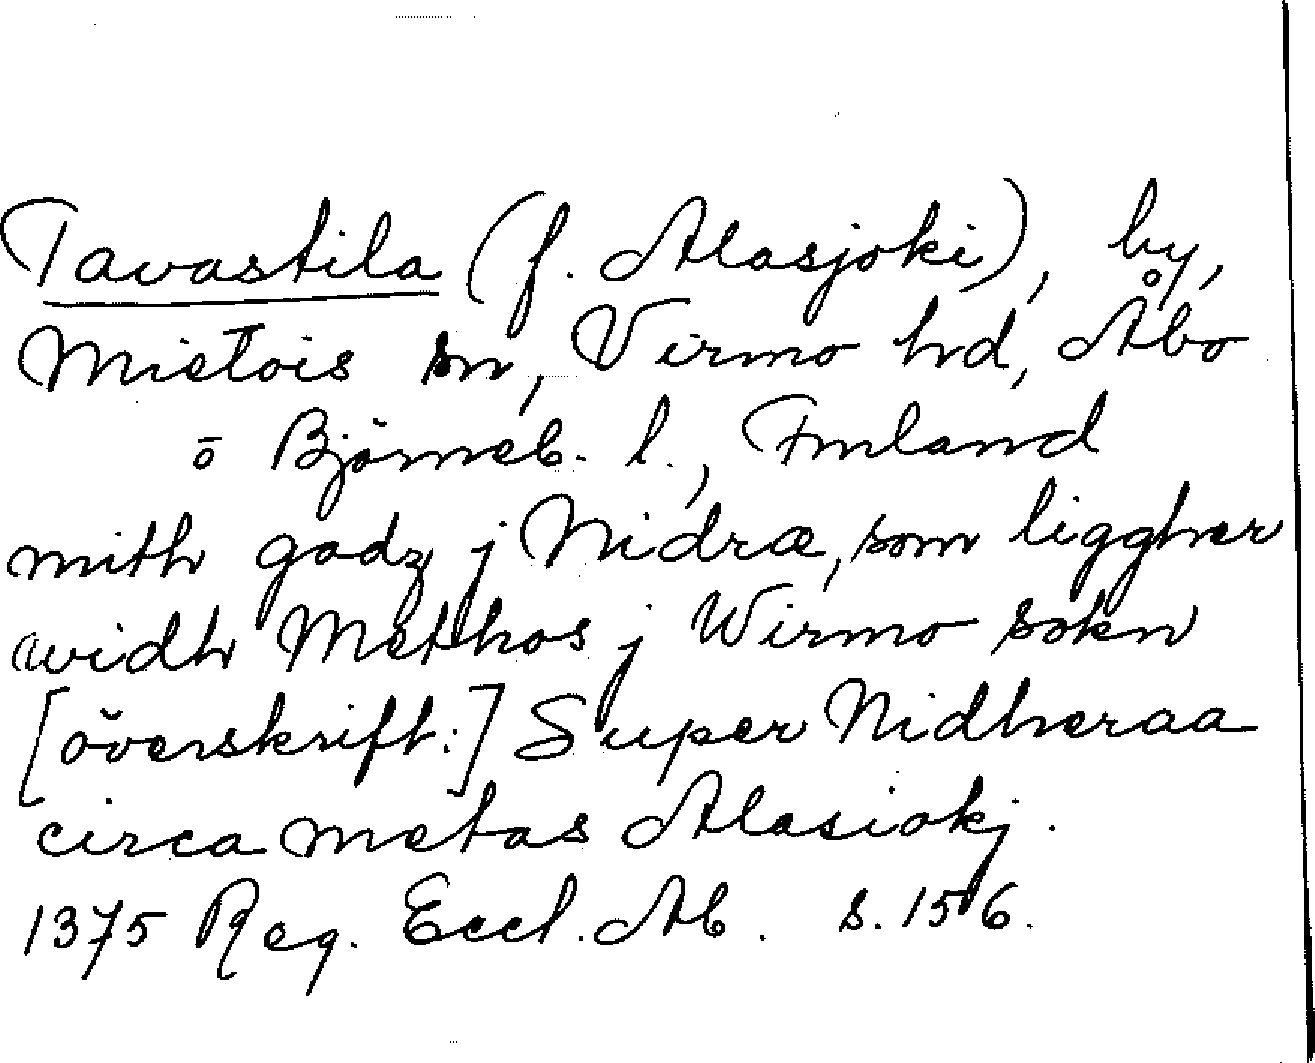 Tavastila (f. Alasjoki), by,
Mietois sn, Virmo hd, Åbo
o Björneb. l., Finland
mith godz j Nidræ, som liggher
widh Methos j Wirmo sokn
[överskrift:] Super Nidheraa
circa metas Alasiokj.
1375 Reg. Eccl. Ab. s. 156.